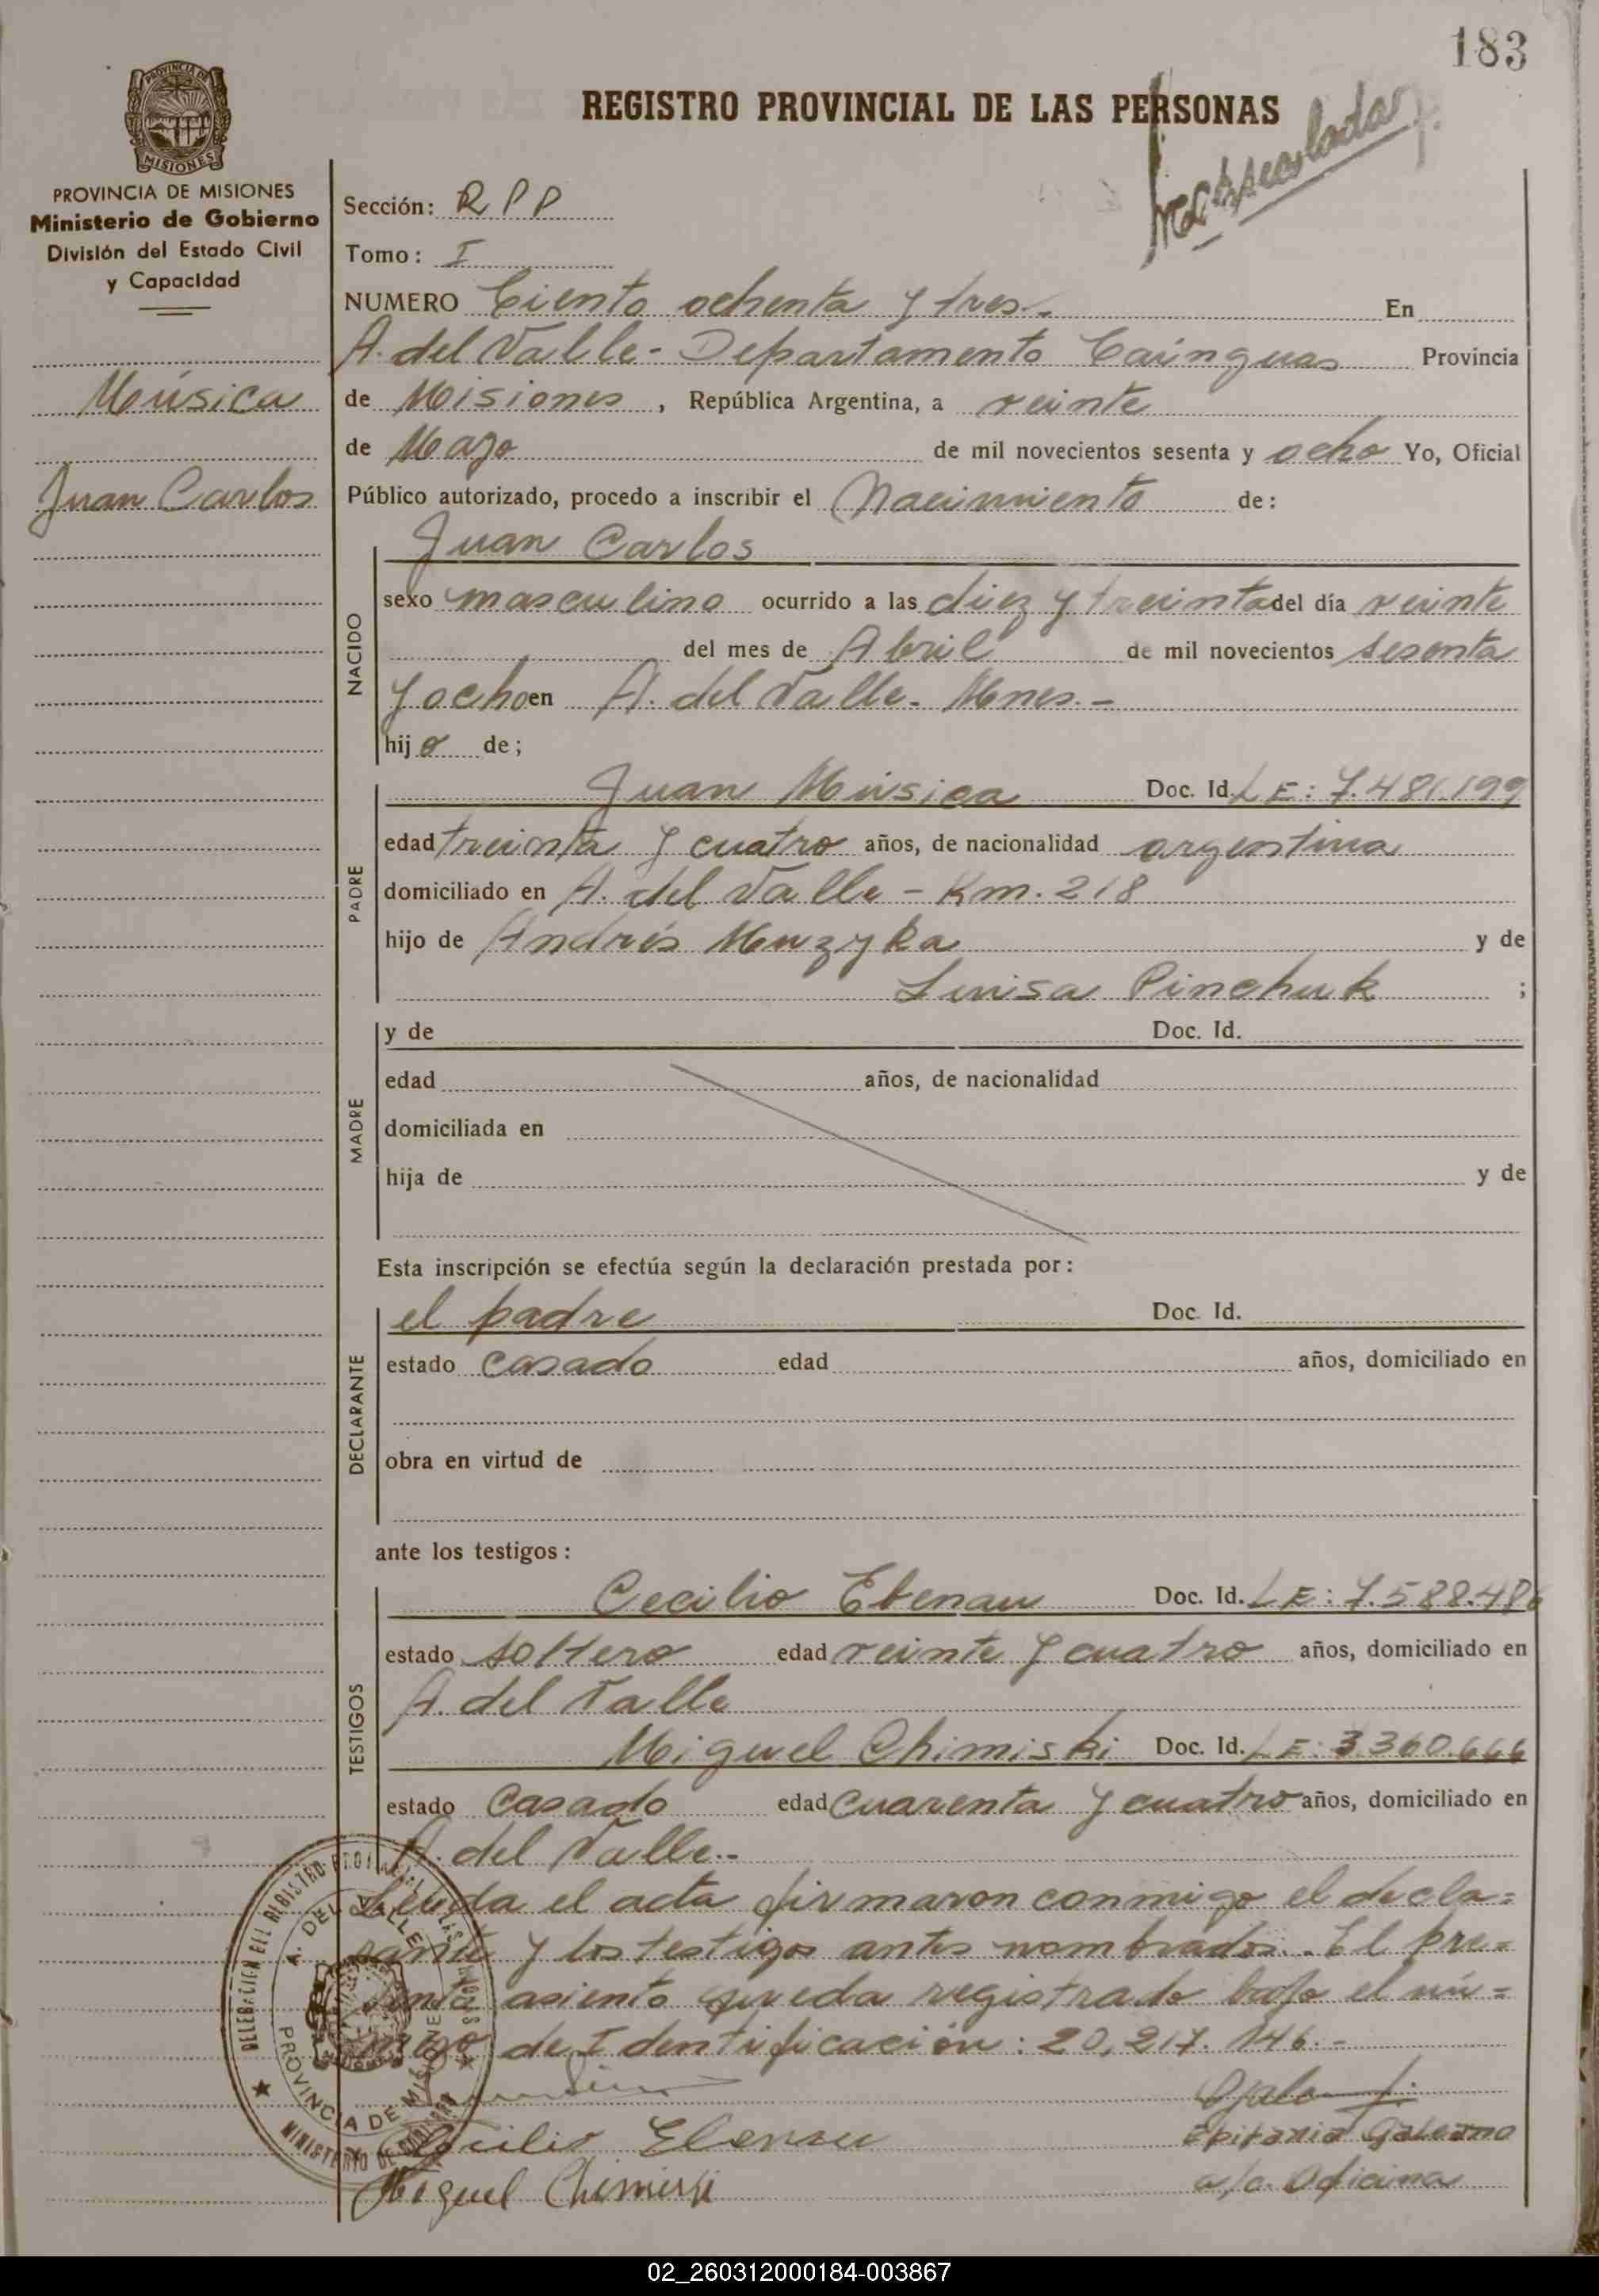 183
REGISTRO PROVINCIAL DE LAS PERSONAS
PROVINCIA DE MISIONES
MISIONES
PROVINCIA DE MISIONES
Ministerio de Gobierno
División del Estado Civil
y Capacidad
Música
Juan Carlos
Sección: R P P
Tomo: I
NUMERO Ciento ochenta y tres.- En
A. del Valle - Departamento Cainguas Provincia
de Misiones, República Argentina, a veinte
de Mayo de mil novecientos sesenta y ocho Yo, Oficial
Público autorizado, procedo a inscribir el Nacimiento de:
Juan Carlos
NACIDO
sexo masculino ocurrido a las diez y treinta del día veinte
del mes de Abril de mil novecientos sesenta
y ocho en A. del Valle. Mnes.-
hijo de;
PADRE
Juan Música Doc. Id. LE: 7.481.199
edad treinta y cuatro años, de nacionalidad argentina
domiciliado en A. del Valle - Km. 218
hijo de Andrés Muzyka y de
Luisa Pinchuk ;
MADRE
y de Doc. Id.
edad años, de nacionalidad
domiciliada en
hija de y de
Esta inscripción se efectúa según la declaración prestada por:
DECLARANTE
el padre Doc. Id.
estado casado edad años, domiciliado en
obra en virtud de
ante los testigos:
TESTIGOS
Cecilio Ebenau Doc. Id. LE: 7.588.486
estado soltero edad veinte y cuatro años, domiciliado en
A. del Valle
Miguel Chimiski Doc. Id. LE: 3.360.666
estado casado edad cuarenta y cuatro años, domiciliado en
A. del Valle.-
Leida el acta firmaron conmigo el decla=
rante y los testigos antes nombrados. El pre=
sente asiento queda registrado bajo el nú=
mero de Identificación: 20.217.146.-
Cecilio Ebenau
Miguel Chimiski
Epifanio Galeano
a/c. Oficina
DELEGACION DEL REGISTRO PROVINCIAL DE LAS PERSONAS
A. DEL VALLE
PROVINCIA DE MISIONES
MINISTERIO DE GOBIERNO
02_260312000184-003867